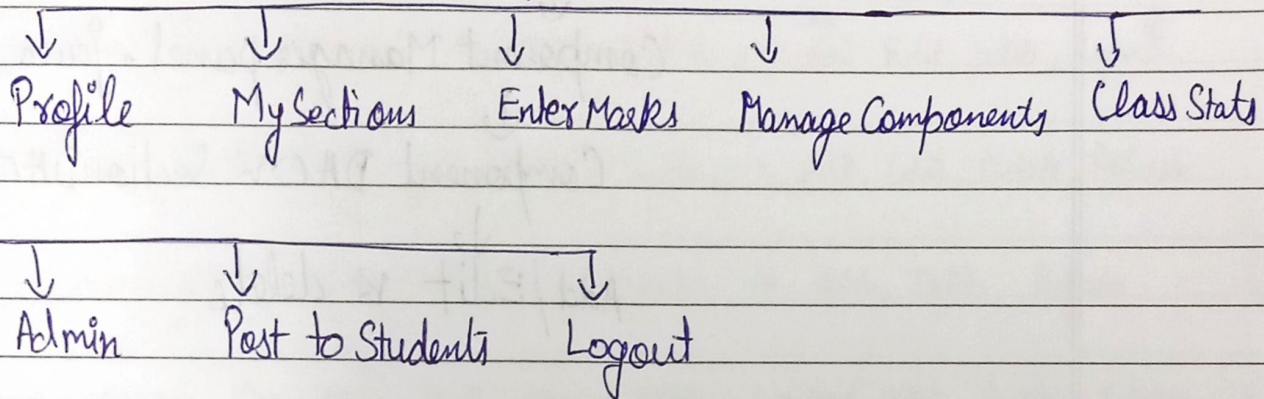 Profile My Sections Enter Marks Manage Components Class Stats
Admin Post to Students Logout